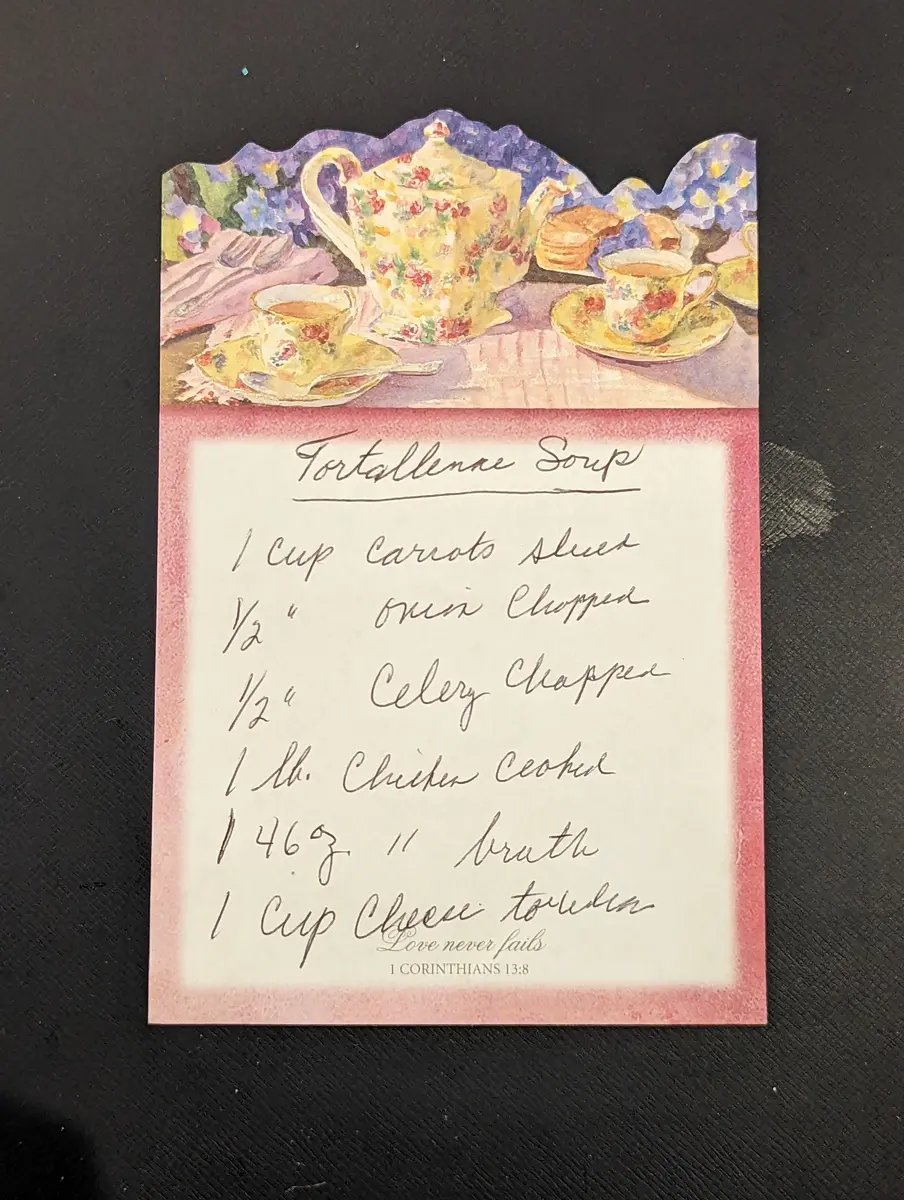 Tortallenne Soup
1 Cup Carrots sliced
1/2 " Onion Chopped
1/2 " Celery Chopped
1 lb. Chicken Cooked
1 46 oz " broth
1 Cup Cheese
Love never fails
1 CORINTHIANS 13:8